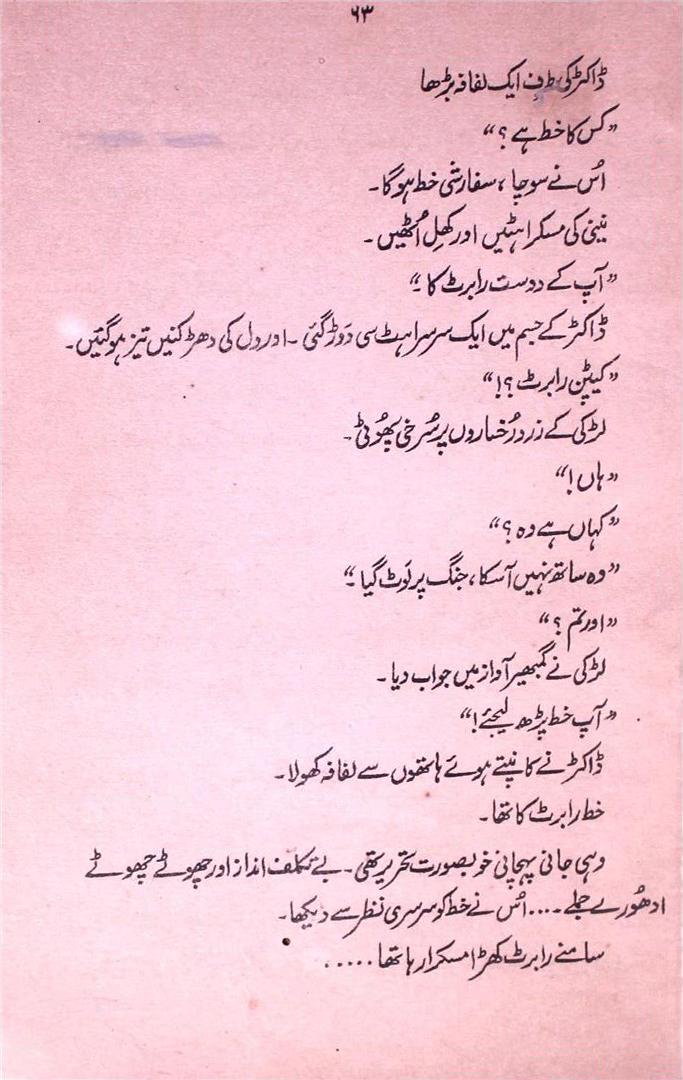 ۶۳
ڈاکٹر کی طرف ایک لفافہ بڑھا
”کس کا خط ہے؟“
اُس نے سوچا، سفارشی خط ہوگا۔
نینی کی مسکراہٹیں اور کھِل اُٹھیں۔
”آپ کے دوست رابرٹ کا۔“
ڈاکٹر کے جسم میں ایک سرسراہٹ سی دَوڑ گئی۔ اور دل کی دھڑکنیں تیز ہو گئیں۔
”کیپٹن رابرٹ؟!“
لڑکی کے زرد رُخساروں پر سُرخی پھُوٹی۔
”ہاں!“
”کہاں ہے وہ؟“
”وہ ساتھ نہیں آسکا، جنگ پر لَوٹ گیا۔“
”اور تم؟“
لڑکی نے گمبھیر آواز میں جواب دیا۔
”آپ خط پڑھ لیجئے!“
ڈاکٹر نے کانپتے ہوئے ہاتھوں سے لفافہ کھولا۔
خط رابرٹ کا تھا۔
وہی جانی پہچانی خوبصورت تحریر تھی۔ بے تکلف انداز اور چھوٹے چھوٹے
ادھُورے جملے۔۔۔۔ اُس نے خط کو سرسری نظر سے دیکھا۔
سامنے رابرٹ کھڑا مسکرا رہا تھا۔۔۔۔۔